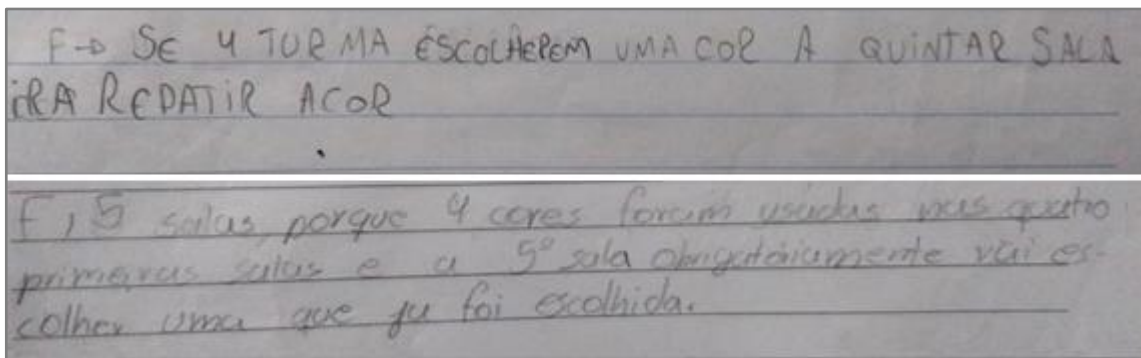 F→ SE 4 TURMA ESCOLHEREM UMA COR A QUINTAR SALA
IRA REPATIR ACOR
F, 5 salas, porque 4 cores foram usadas nas quatro
primeiras salas e a 5º sala obrigatóriamente vai es-
colher uma que ja foi escolhida.